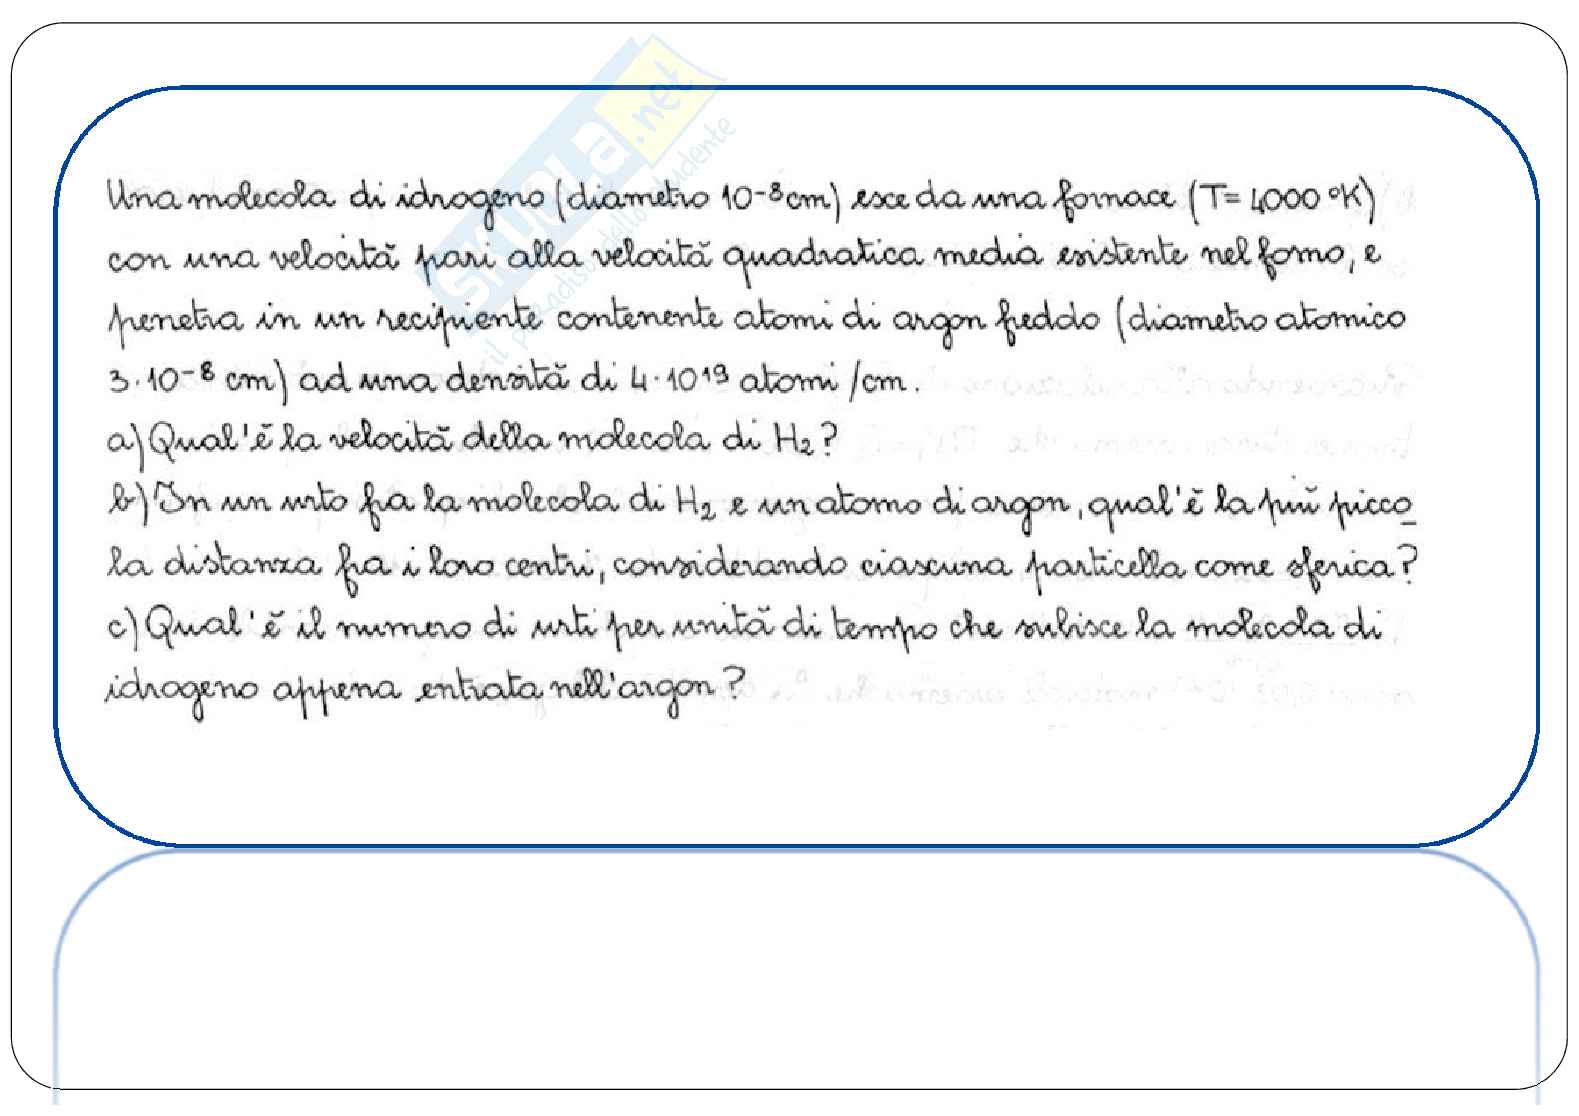 SKUOLA.net
il paradiso dello studente
Una molecola di idrogeno (diametro 10⁻⁸ cm) esce da una fornace (T= 4000 °K)
con una velocità pari alla velocità quadratica media esistente nel forno, e
penetra in un recipiente contenente atomi di argon freddo (diametro atomico
3·10⁻⁸ cm) ad una densità di 4·10¹⁹ atomi /cm.
a) Qual'è la velocità della molecola di H₂?
b) In un urto fra la molecola di H₂ e un atomo di argon, qual'è la più picco
la distanza fra i loro centri, considerando ciascuna particella come sferica?
c) Qual'è il numero di urti per unità di tempo che subisce la molecola di
idrogeno appena entrata nell'argon?